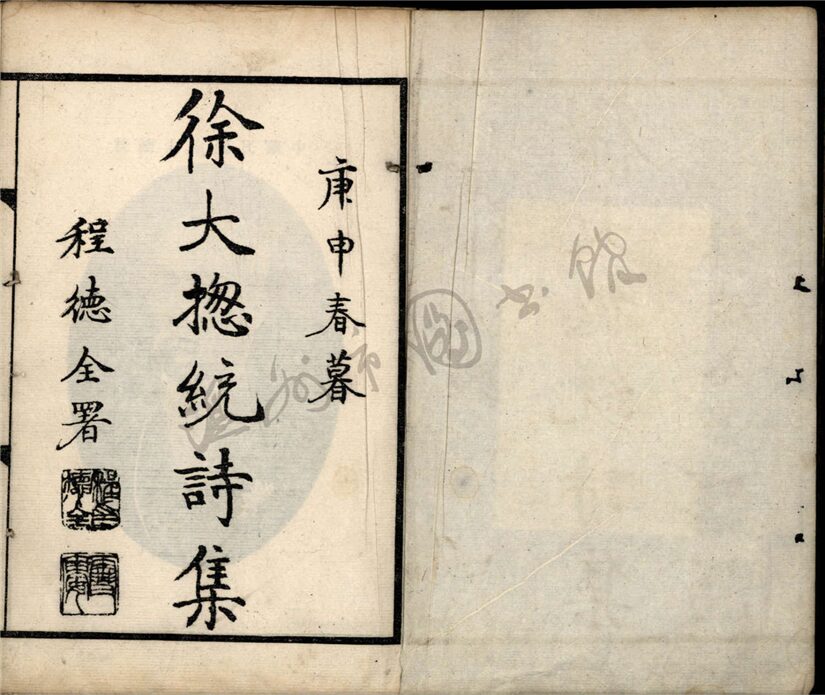 庚申春暮
徐大揔統詩集
程德全署